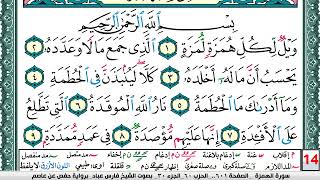 بِسْمِ اللَّهِ الرَّحْمَٰنِ الرَّحِيمِ
وَيْلٌ لِّكُلِّ هُمَزَةٍ لُّمَزَةٍ ١ الَّذِي جَمَعَ مَالًا وَعَدَّدَهُ ٢
يَحْسَبُ أَنَّ مَالَهُ أَخْلَدَهُ ٣ كَلَّا لَيُنبَذَنَّ فِي الْحُطَمَةِ ٤
وَمَا أَدْرَاكَ مَا الْحُطَمَةُ ٥ نَارُ اللَّهِ الْمُوقَدَةُ ٦ الَّتِي تَطَّلِعُ
عَلَى الْأَفْئِدَةِ ٧ إِنَّهَا عَلَيْهِم مُّؤْصَدَةٌ ٨ فِي عَمَدٍ مُّمَدَّدَةٍ ٩
14
سورة الهمزة . الصفحة ٦٠١ . الحزب ٦٠ الجزء ٣٠ . بصوت الشيخ فارس عباد برواية حفص عن عاصم